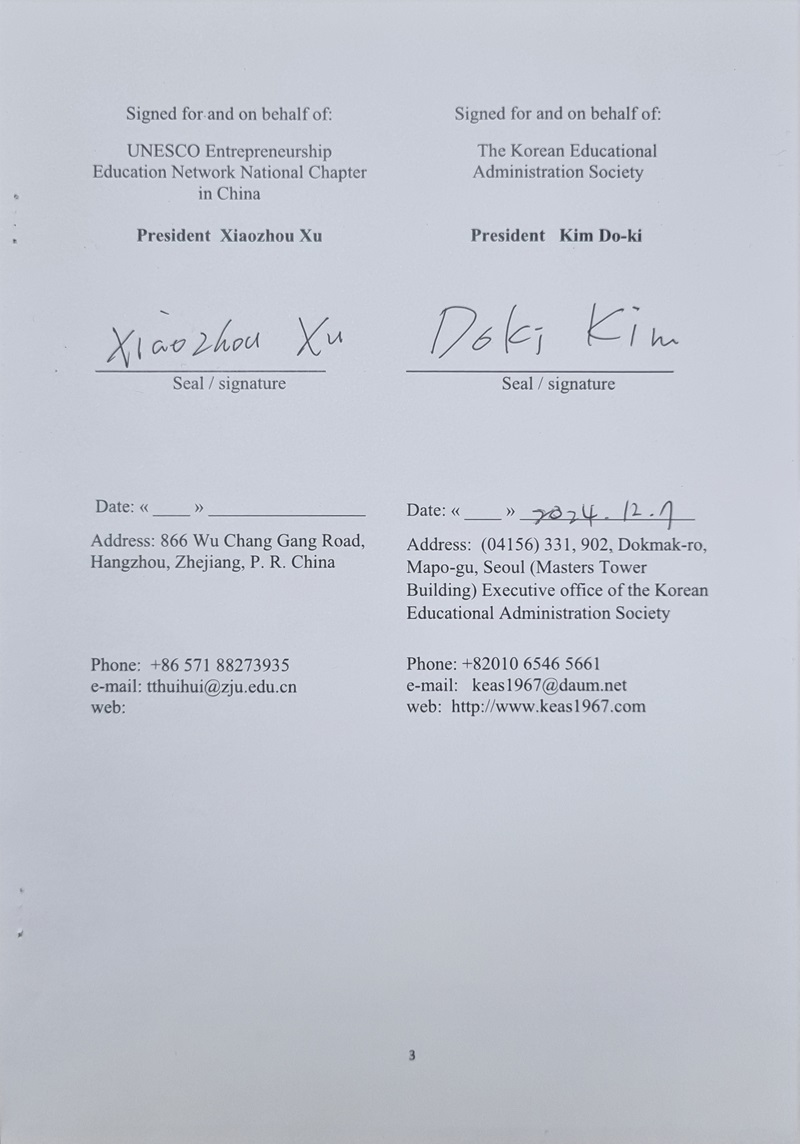 Signed for and on behalf of:
UNESCO Entrepreneurship
Education Network National Chapter
in China
President Xiaozhou Xu
Xiaozhou Xu
Seal / signature
Date: « ____ » __________________
Address: 866 Wu Chang Gang Road,
Hangzhou, Zhejiang, P. R. China
Phone: +86 571 88273935
e-mail: tthuihui@zju.edu.cn
web:
Signed for and on behalf of:
The Korean Educational
Administration Society
President Kim Do-ki
Doki Kim
Seal / signature
Date: « ____ » 2024.12.7
Address: (04156) 331, 902, Dokmak-ro,
Mapo-gu, Seoul (Masters Tower
Building) Executive office of the Korean
Educational Administration Society
Phone: +82010 6546 5661
e-mail: keas1967@daum.net
web: http://www.keas1967.com
3